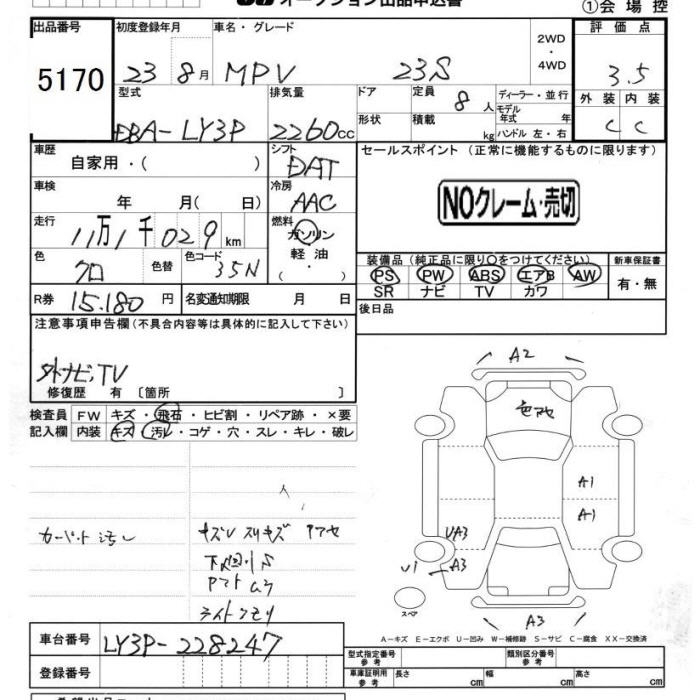 オークション出品申込書
①会場控
出品番号
5170
初度登録年月
23 8月
車名・グレード
MPV 23S
2WD
・
4WD
評価点
3.5
外装 内装
C C
型式
DBA-LY3P
排気量
2260cc
ドア
形状
定員 8人
積載 kg
ディーラー・並行
モデル年式 年
ハンドル 左・右
車歴
自家用・( )
シフト
DAT
セールスポイント (正常に機能するものに限ります)
NOクレーム・売切
車検
年 月( 日)
冷房
AAC
走行
11万1千029km
燃料
ガソリン
軽油
( ・ )
色
クロ
色替
色コード
35N
装備品(純正品に限り○をつけてください)
新車保証書
PS PW ABS エアB AW
SR ナビ TV カワ
有・無
R券 15.180円
名変通知期限 月 日
後日品
注意事項申告欄(不具合内容等は具体的に記入して下さい)
外ナビ,TV
修復歴 有〔箇所 〕
検査員
記入欄
FW キズ・飛石・ヒビ割・リペア跡・×要
内装 キズ・汚レ・コゲ・穴・スレ・キレ・破レ
カーペット汚レ
キズU スリキズ アワセ
ライトクモリ
A2
A1
A1
UA3
U1
A3
A3
スペア
A-キズ E-エクボ U-凹み W-補修跡 S-サビ C-腐食 XX-交換済
車台番号 LY3P-228247
登録番号
型式指定番号
参考
類別区分番号
参考
車庫証明用
参考
長さ cm
幅 cm
高さ cm